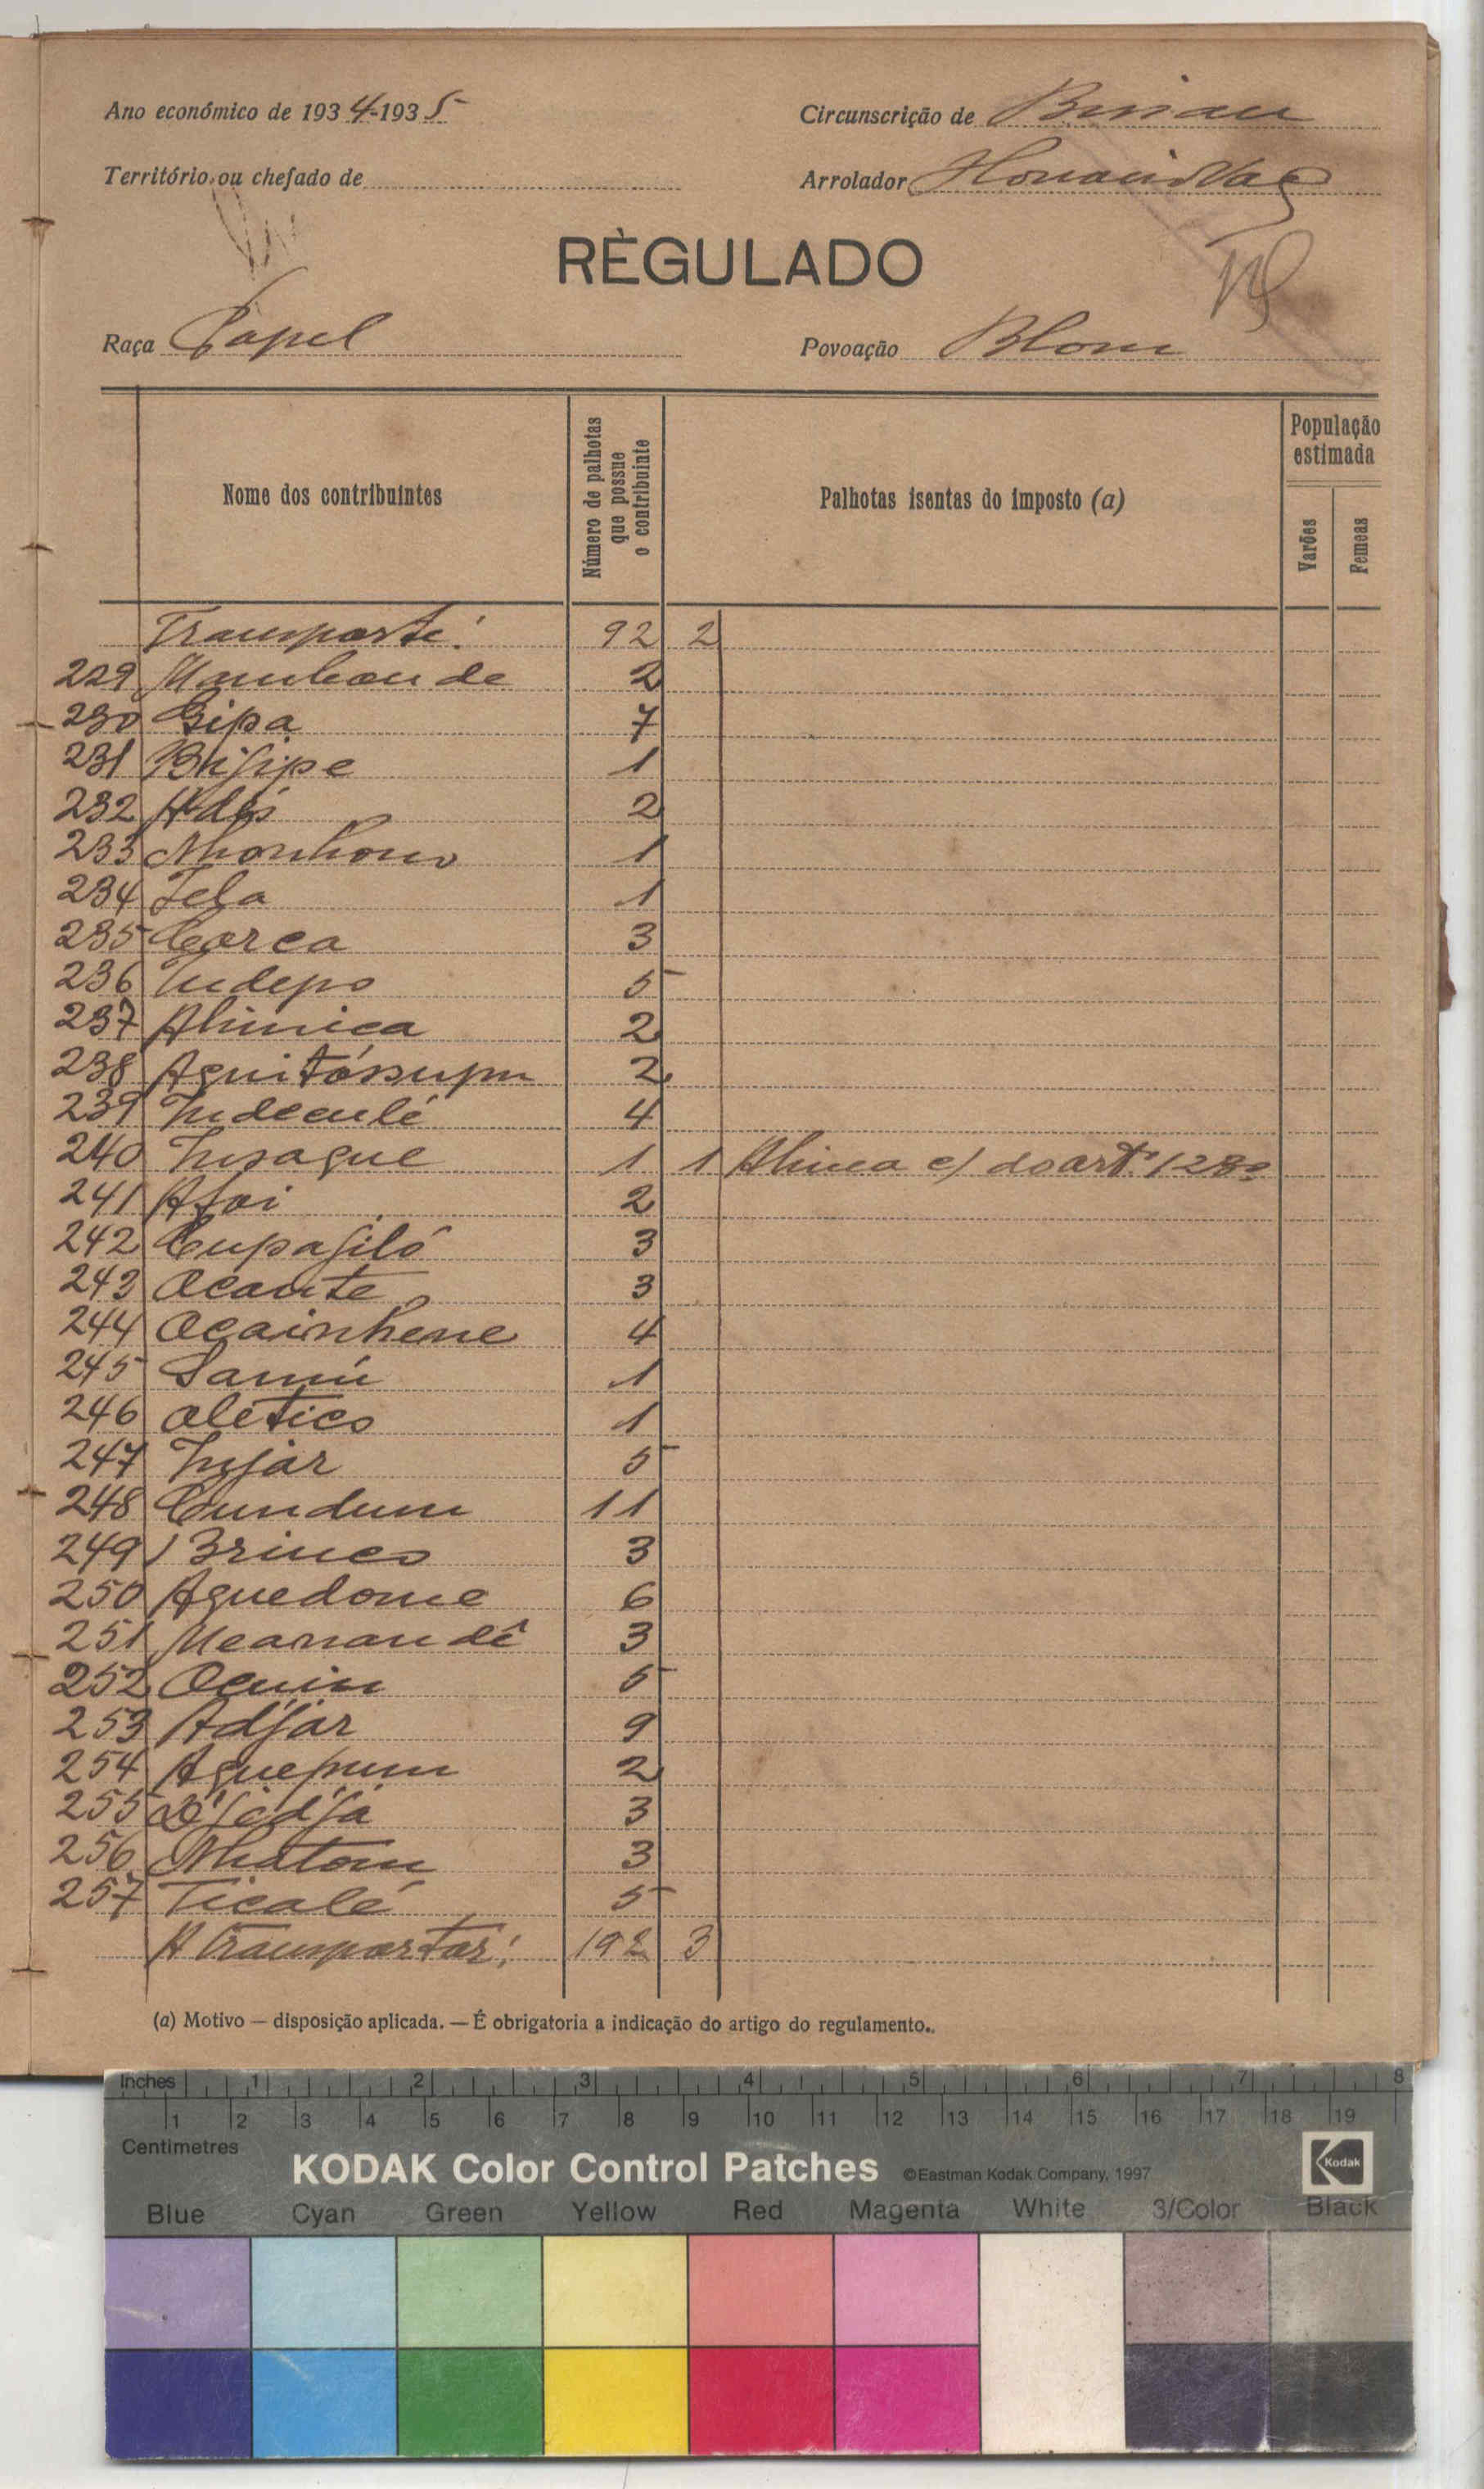 Ano económico de 1934-1935
Circunscrição de Bissau
Território ou chefado de
Arrolador
RÈGULADO
Raça Papel
Povoação Blom
Nome dos contribuintes
Número de palhotas que possue o contribuinte
Palhotas isentas do imposto (a)
População estimada
Varões
Femeas
Transporte: 92 2
229 2
230 Bipa 7
231 1
232 2
233 1
234 Tela 1
235 Carca 3
236 Indepo 5
237 2
238 2
239 Indeculé 4
240 Insague 1 1 c/ do artº 128º
241 Afoi 2
242 Cupagiló 3
243 Ocante 3
244 Ocainhene 4
245 1
246 1
247 Injar 5
248 Cundum 11
249 3
250 Aguedome 6
251 3
252 Ocuim 5
253 Adjar 9
254 Aguepum 2
255 3
256 Nhatom 3
257 Ticalé 5
A transportar: 192 3
(a) Motivo — disposição aplicada. — É obrigatoria a indicação do artigo do regulamento..
Inches 1 2 3 4 5 6 7 8
1 2 3 4 5 6 7 8 9 10 11 12 13 14 15 16 17 18 19
Centimetres
KODAK Color Control Patches ©Eastman Kodak Company, 1997 Kodak
Blue Cyan Green Yellow Red Magenta White 3/Color Black